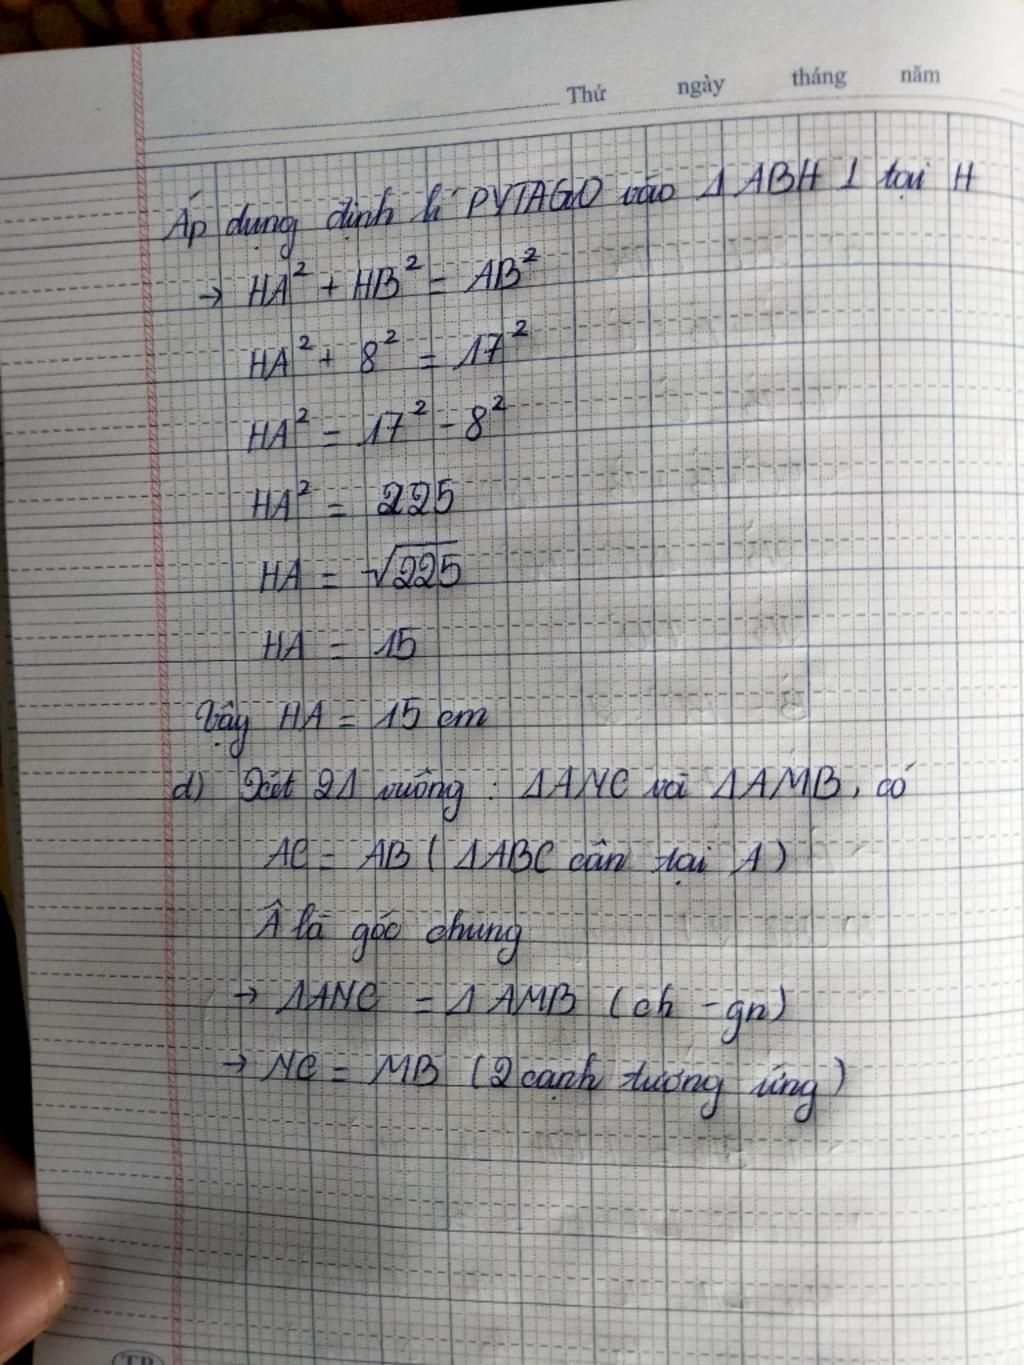 Thứ ngày tháng năm
Áp dụng định lí PYTAGO vào Δ ABH ⊥ tại H
→ HA² + HB² = AB²
HA² + 8² = 17²
HA² = 17² - 8²
HA² = 225
HA = √225
HA = 15
Vậy HA = 15 cm
d) Xét 2Δ vuông : ΔANC và ΔAMB, có
AC = AB ( ΔABC cân tại A )
Â là góc chung
→ ΔANC = Δ AMB (ch - gn)
→ NC = MB (2 cạnh tương ứng)